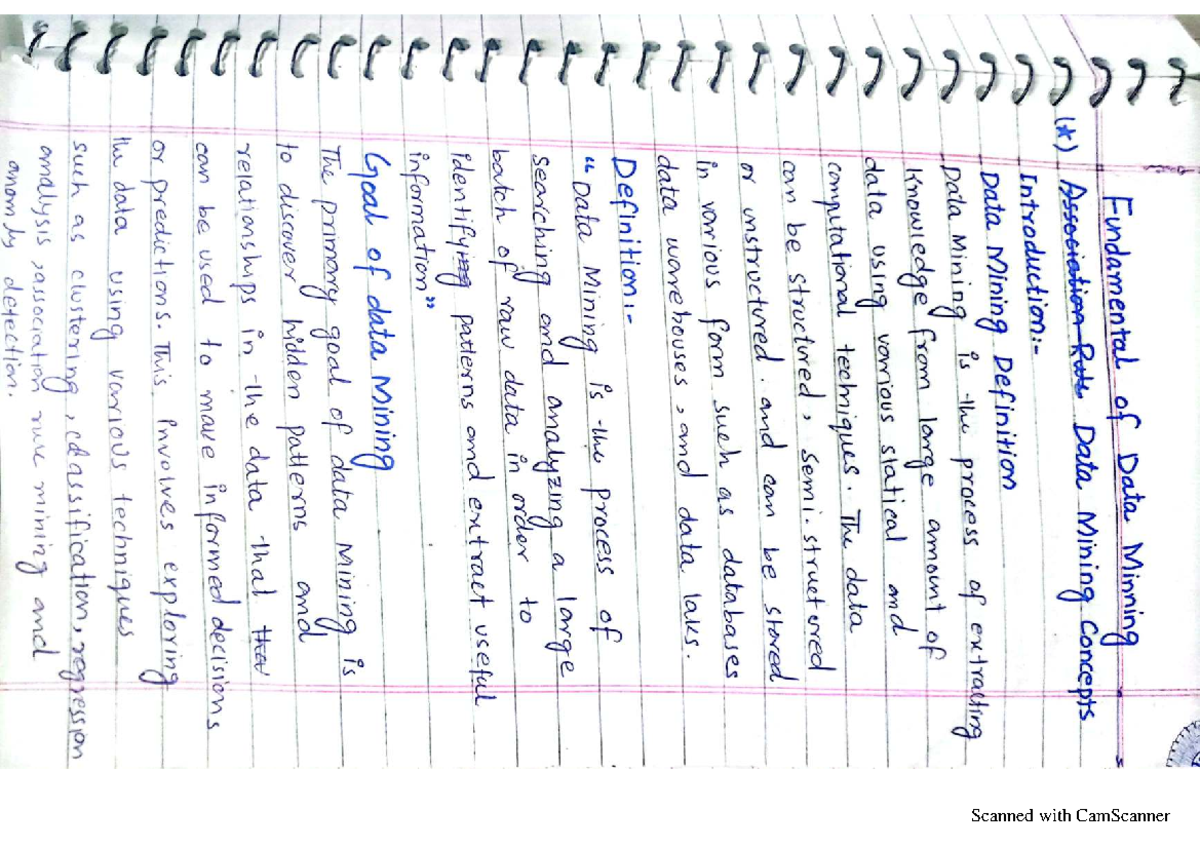 Fundamental of Data Minning
(*) Association Rule Data Mining Concepts
Introduction:-
Data Mining Definition
Data Mining is the process of extracting
Knowledge from large amount of
data using various statical and
computational techniques. The data
can be structured, semi-structered
or unstructured. and can be stored
in various form such as databases
data warehouses, and data laks.
Definition:-
"Data Mining is the process of
searching and analyzing a large
batch of raw data in order to
identifying patterns and extract useful
information"
Goal of data Mining
The primary goal of data Mining is
to discover hidden patterns and
relationships in the data that that
can be used to make informed decisions
or predictions. This Involves exploring
the data using various techniques
such as clustering, classification, regression
analysis, association rule mining and
anomly detection.
Scanned with CamScanner